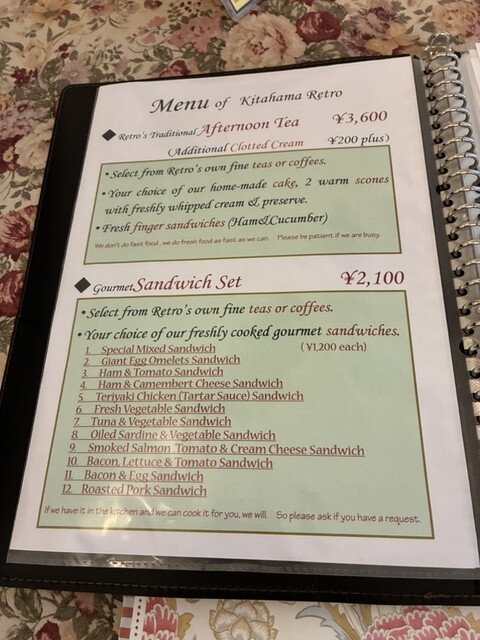 Menu of Kitahama Retro
◆ Retro's Traditional Afternoon Tea ¥3,600
(Additional Clotted Cream ¥200 plus)
•Select from Retro's own fine teas or coffees.
•Your choice of our home-made cake, 2 warm scones
with freshly whipped cream & preserve.
•Fresh finger sandwiches (Ham&Cucumber)
We don't do fast food , we do fresh food as fast as we can. Please be patient if we are busy.
◆ Gourmet Sandwich Set ¥2,100
•Select from Retro's own fine teas or coffees.
•Your choice of our freshly cooked gourmet sandwiches.
(¥1,200 each)
1. Special Mixed Sandwich
2. Giant Egg Omelets Sandwich
3. Ham & Tomato Sandwich
4. Ham & Camembert Cheese Sandwich
5. Teriyaki Chicken (Tartar Sauce) Sandwich
6. Fresh Vegetable Sandwich
7. Tuna & Vegetable Sandwich
8. Oiled Sardine & Vegetable Sandwich
9. Smoked Salmon ,Tomato & Cream Cheese Sandwich
10. Bacon, Lettuce & Tomato Sandwich
11. Bacon & Egg Sandwich
12. Roasted Pork Sandwich
If we have it in the kitchen and we can cook it for you, we will. So please ask if you have a request.